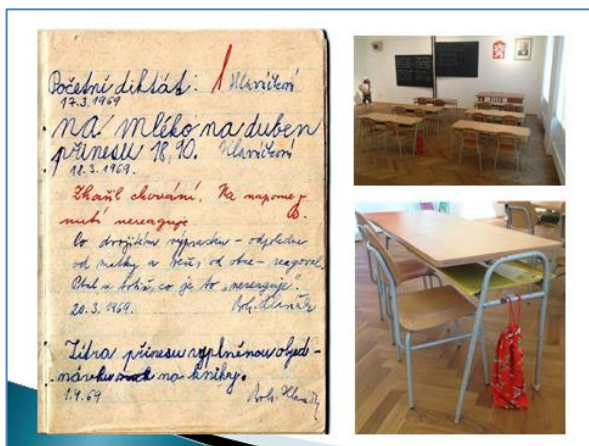 Početní diktát: 1 Hlaváčková
17.3.1969
na mléko na duben
přinesu 18,90. Hlaváčková
18.3.1969.
Zhoršil chování. Na napome-
nutí nereaguje
Co dvojitém výprasku - odpoledne
od matky a večer od otce - reagoval.
Ptal se bohužel, co je to "nereaguje".
20.3.1969. Boh. Hlaváčk
Zítra přinesu vyplněnou objed-
návku na knihy.
1.4.69 Boh. Hlaváčk